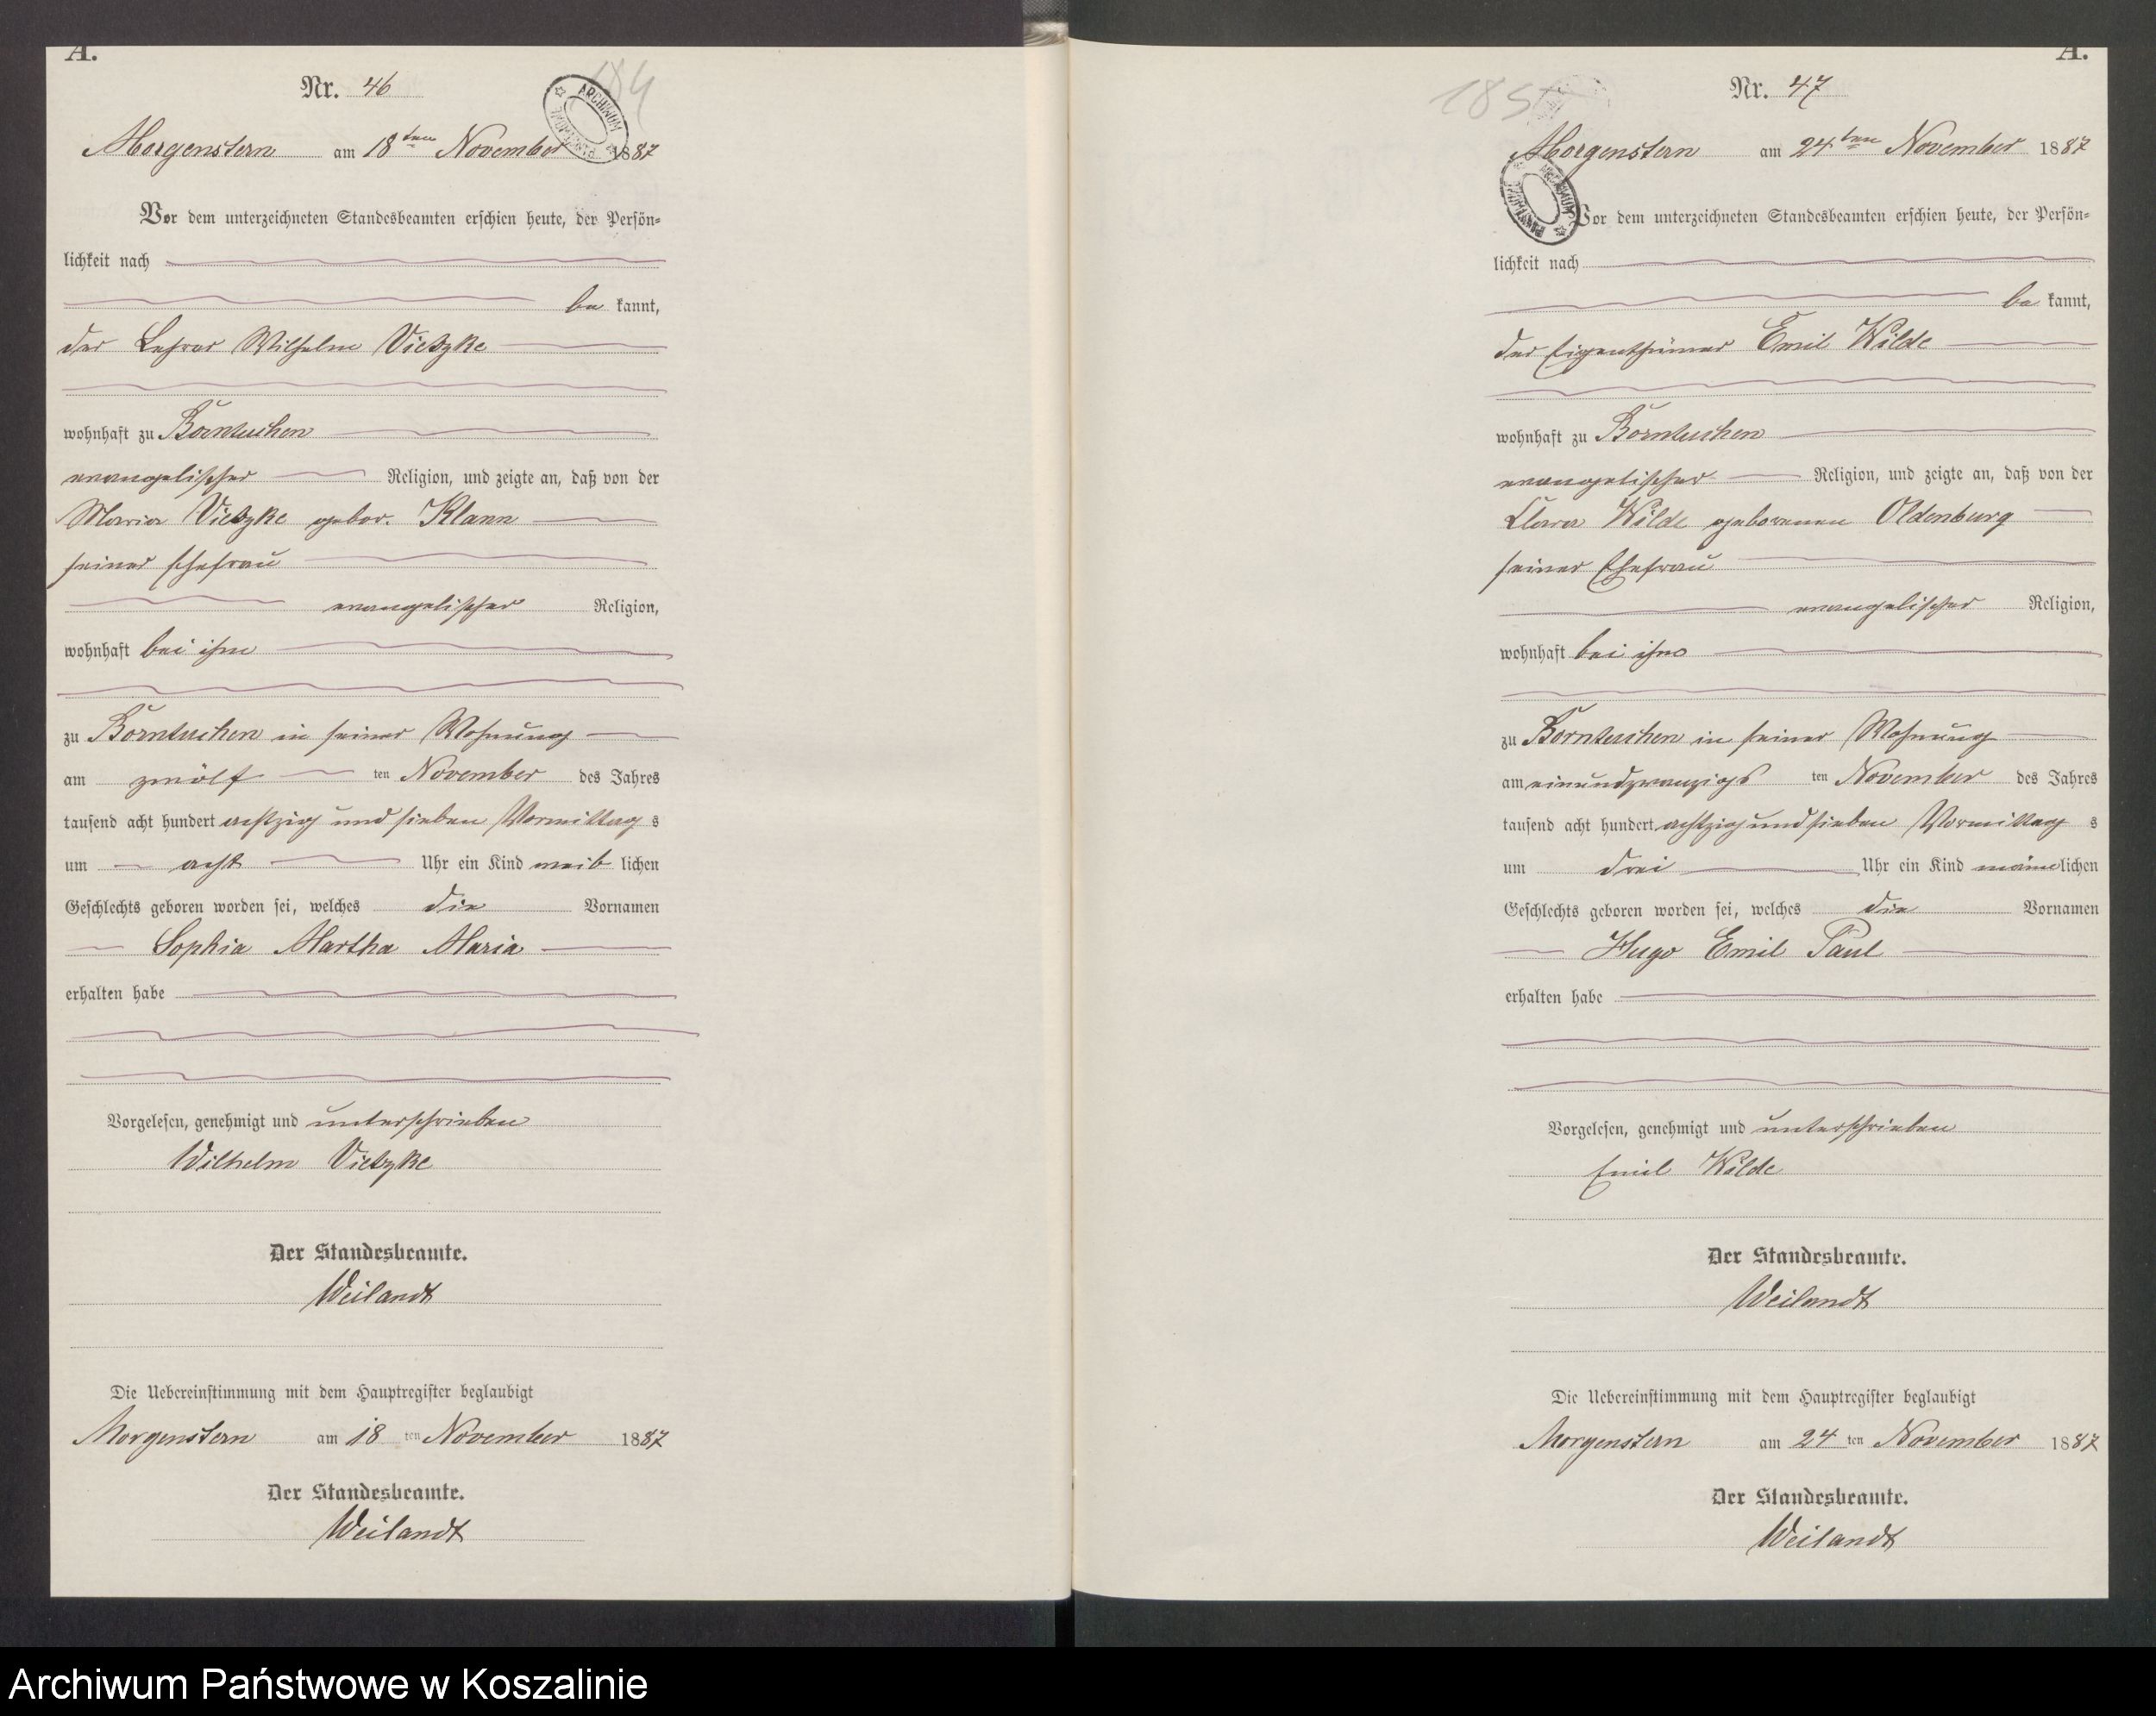 A.
Nr. 46
184
ARCHIWUM
Morgenstern am 18ten November 1887
Vor dem unterzeichneten Standesbeamten erschien heute, der Persön=
lichkeit nach
be kannt,
der Lehrer Wilhelm Vietzke
wohnhaft zu Borntuchen
evangelischer Religion, und zeigte an, daß von der
Maria Vietzke gebor. Klann
seiner Ehefrau
evangelischer Religion,
wohnhaft bei ihm
zu Borntuchen in seiner Wohnung
am zwölf ten November des Jahres
tausend acht hundert achtzig und sieben Vormittag s
um acht Uhr ein Kind weib lichen
Geschlechts geboren worden sei, welches die Vornamen
Sophia Martha Maria
erhalten habe
Vorgelesen, genehmigt und unterschrieben
Wilhelm Vietzke
Der Standesbeamte.
Weilandt
Die Uebereinstimmung mit dem Hauptregister beglaubigt
Morgenstern am 18 ten November 1887
Der Standesbeamte.
Weilandt
A.
Nr. 47
185
Morgenstern am 24ten November 1887
Vor dem unterzeichneten Standesbeamten erschien heute, der Persön=
lichkeit nach
be kannt,
der Eigenthümer Emil Wilde
wohnhaft zu Borntuchen
evangelischer Religion, und zeigte an, daß von der
Clara Wilde geborenen Oldenburg
seiner Ehefrau
evangelischer Religion,
wohnhaft bei ihm
zu Borntuchen in seiner Wohnung
am einundzwanzigs ten November des Jahres
tausend acht hundert achtzig und sieben Vormittag s
um drei Uhr ein Kind männlichen
Geschlechts geboren worden sei, welches die Vornamen
Hugo Emil Paul
erhalten habe
Vorgelesen, genehmigt und unterschrieben
Emil Wilde
Der Standesbeamte.
Weilandt
Die Uebereinstimmung mit dem Hauptregister beglaubigt
Morgenstern am 24 ten November 1887
Der Standesbeamte.
Weilandt
Archiwum Państwowe w Koszalinie